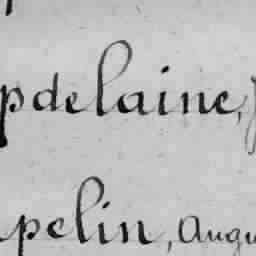 pdelaine,
pelin, Augu